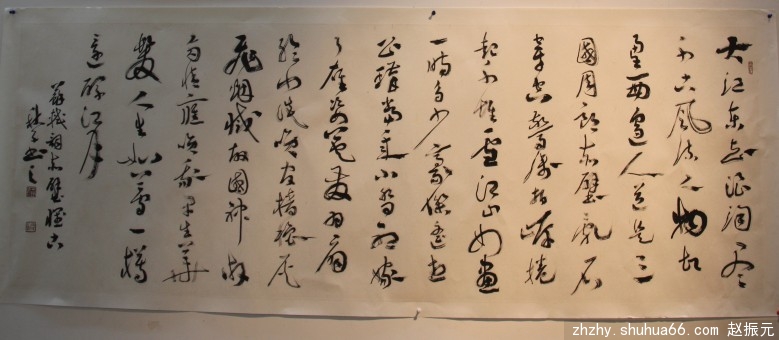 大江東去浪淘盡
千古風流人物故
壘西邊人道是三
國周郎赤壁亂石
穿空驚濤拍岸捲
起千堆雪江山如畫
一時多少豪傑遙想
公瑾當年小喬初嫁
了雄姿英發羽扇
綸巾談笑間檣櫓灰
飛烟滅故國神遊
多情應笑我早生華
髮人生如夢一樽
還酹江月
蘇軾詞赤壁懷古
zhzhy.shuhua66.com 赵振元